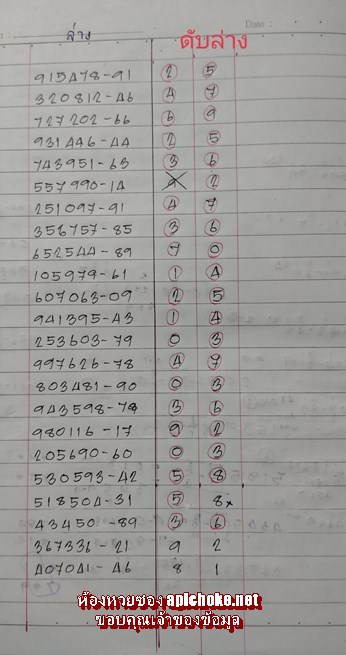 Date :
ล่าง ดับล่าง
915478-91 2 5
320812-46 4 7
727202-66 6 9
931446-44 2 5
743951-63 3 6
557990-14 9 2
251097-91 4 7
356757-85 3 6
652544-89 7 0
105979-61 1 4
607063-09 2 5
941395-43 1 4
253603-79 0 3
997626-78 4 7
803481-90 0 3
943598-78 3 6
980116-17 9 2
205690-60 0 3
530593-42 5 8
518504-31 5 8x
43450-89 3 6
367336-21 9 2
407041-46 8 1
ห้องหวยซอง apichoke.net
ขอบคุณเจ้าของข้อมูล